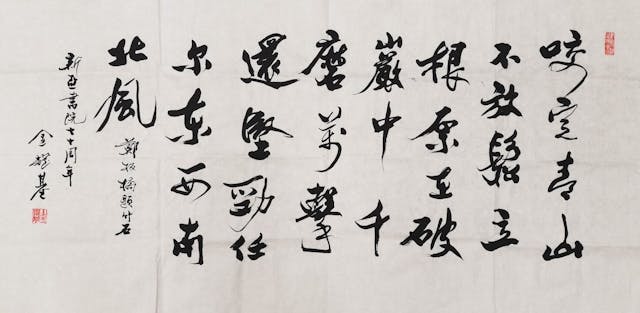 咬定青山
不放鬆立
根原在破
巖中千
磨萬擊
還堅勁任
尔東西南
北風
鄭板橋題竹石
新亞書院七十周年
金耀基